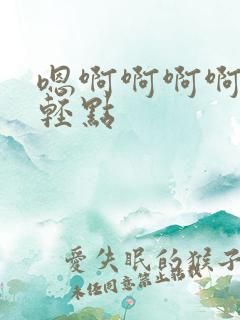 嗯啊啊啊啊
輕點
愛失眠的猴子
未经同意禁止转载